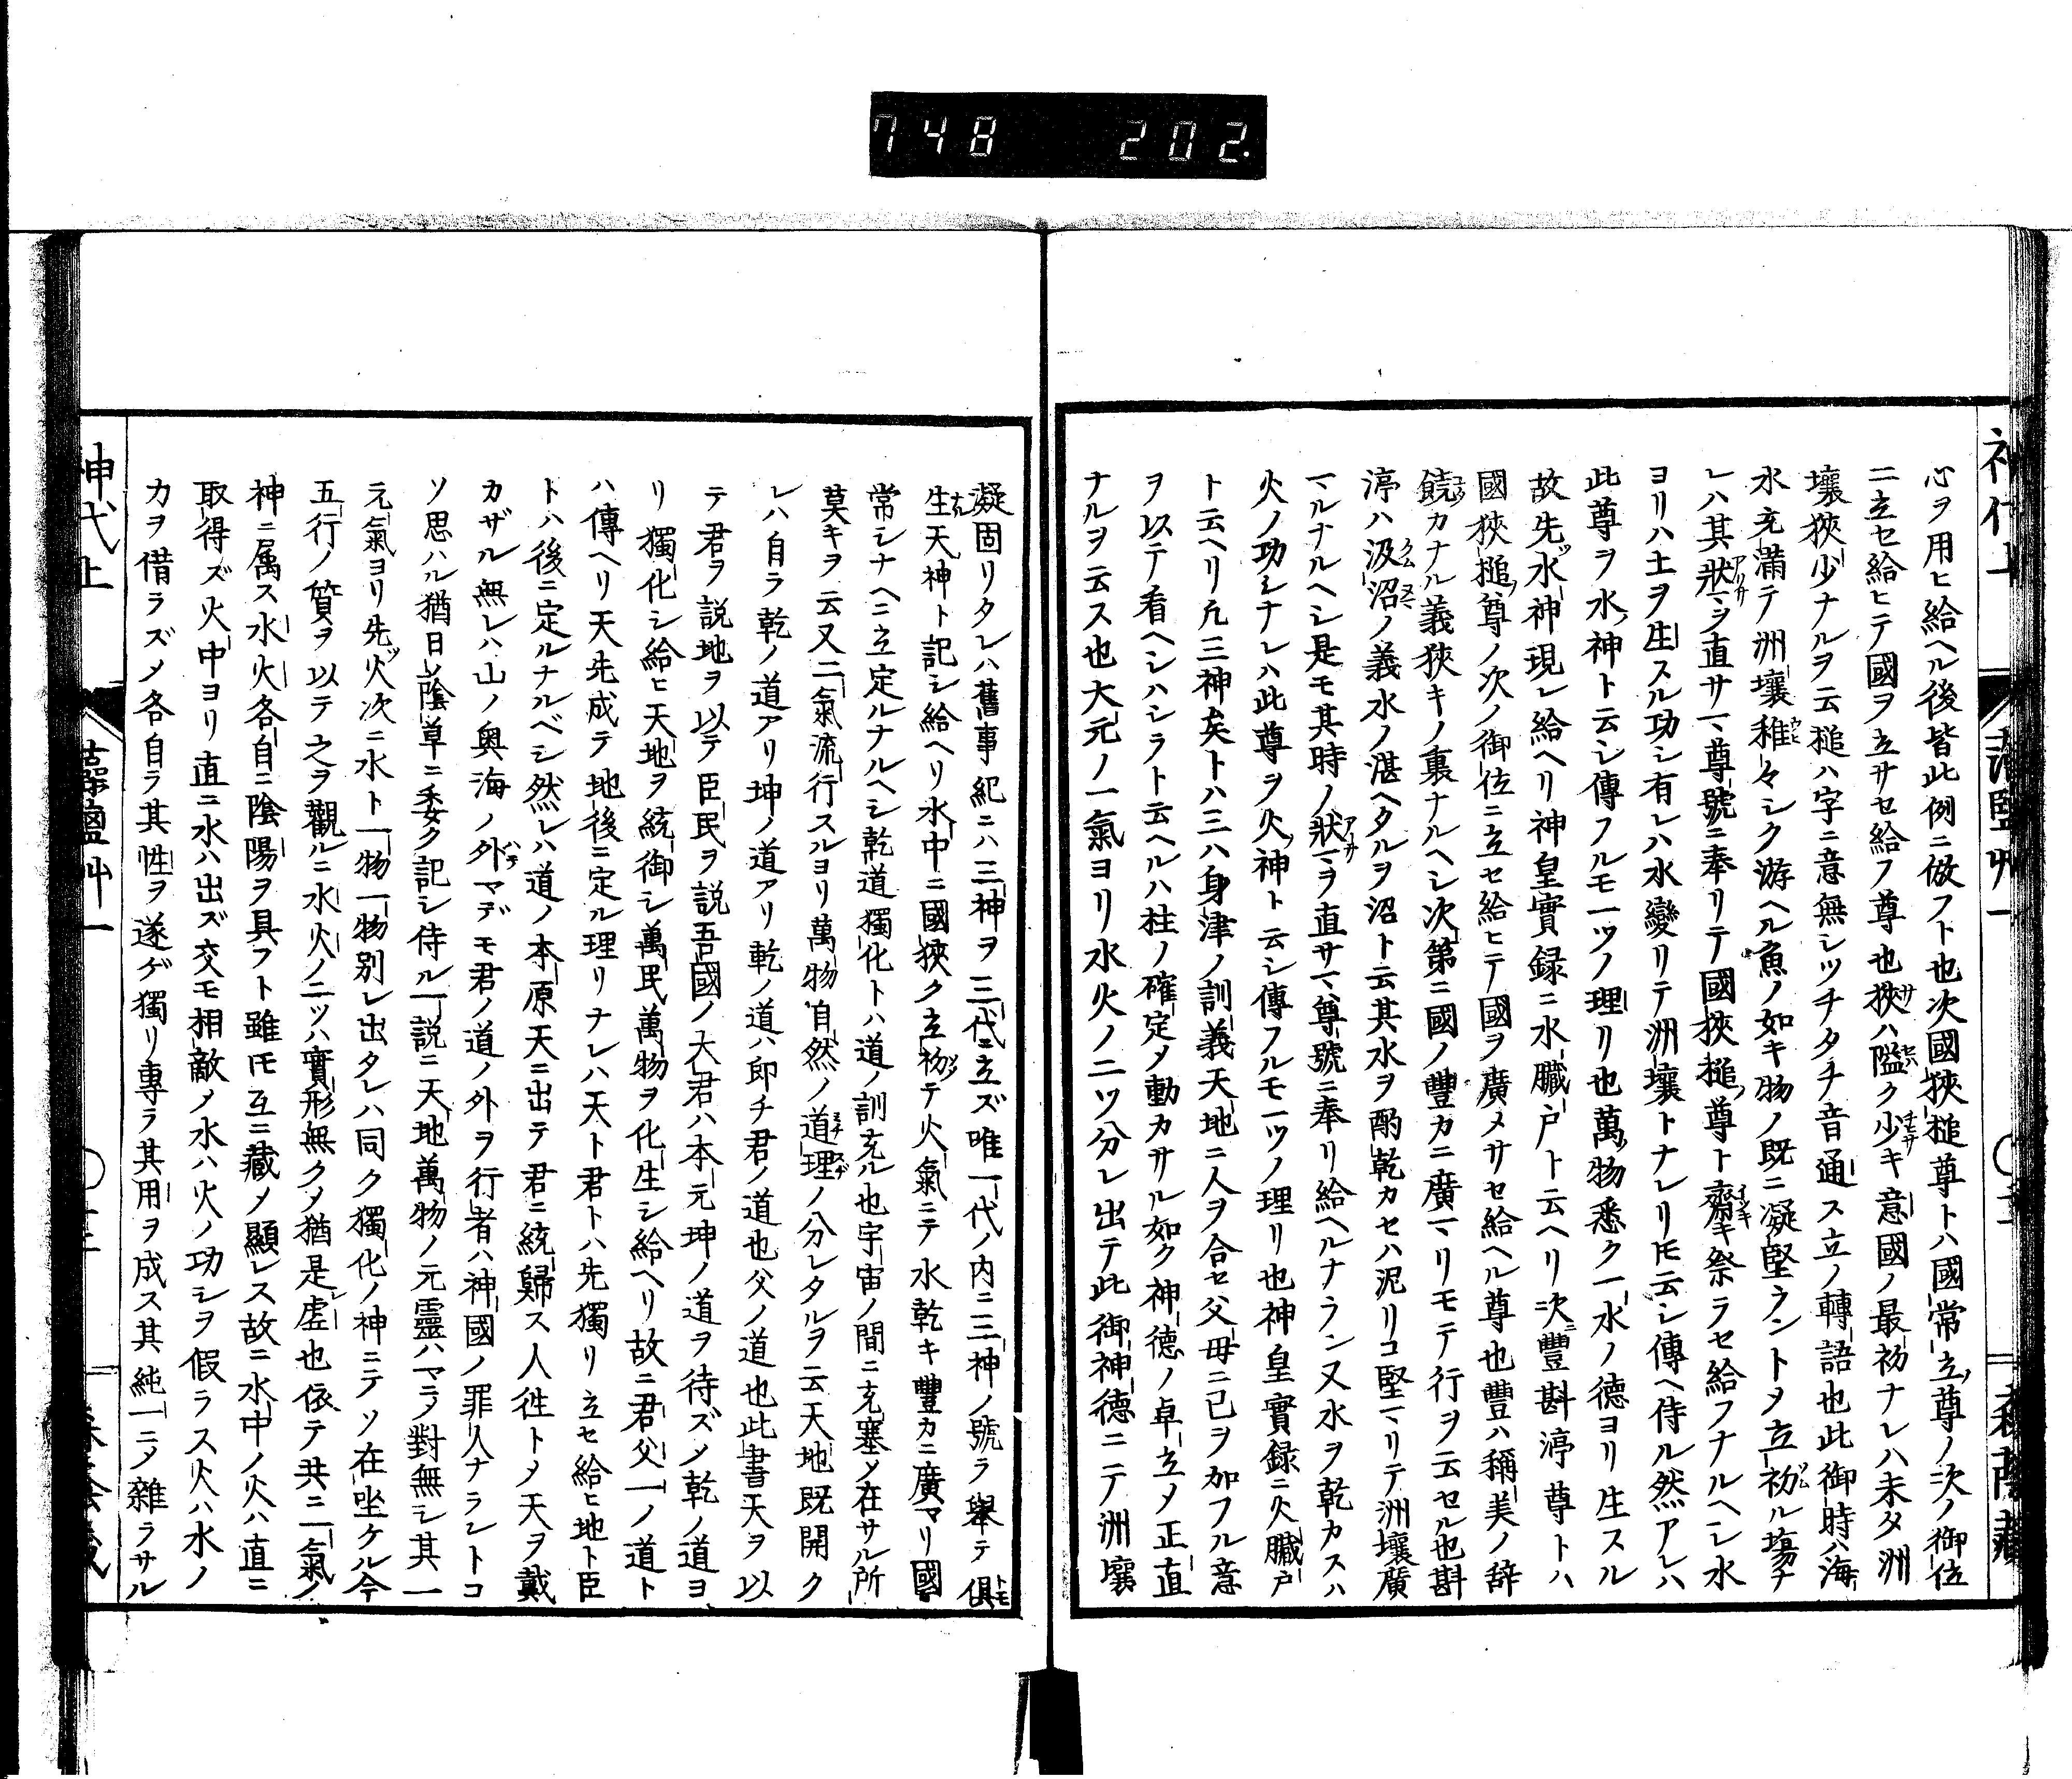 748 202.
心ヲ用ヒ給ヘル後皆此例ニ倣フト也次國狹槌尊トハ國常立尊ノ次ノ御位
ニ立セ給ヒテ國ヲ立サセ給フ尊也狹ハ隘ク少キ意國ノ最初ナレハ未タ洲
壤狹少ナルヲ云槌ハ字ニ意無シツチタチ音通ス立ノ轉語也此御時ハ海
水充滿テ洲壤稚々シク游ヘル魚ノ如キ物ノ既ニ凝堅ラントメ立初ル塲ナ
レハ其狀ヲ直サマ尊號ニ奉リテ國狹槌尊ト齋キ祭ラセ給フナルヘシ水
ヨリハ土ヲ生スル功シ有レハ水變リテ洲壤トナレリ𪜈云シ傳ヘ侍ル然アレハ
此尊ヲ水神ト云シ傳フルモ一ツノ理リ也萬物悉ク一水ノ德ヨリ生スル
故先水神現レ給ヘリ神皇實録ニ水臓戸ト云ヘリ次豐斟渟尊トハ
國狹槌尊ノ次ノ御位ニ立セ給ヒテ國ヲ廣メサセ給ヘル尊也豐ハ稱美ノ辞
饒カナル義狹キノ裏ナルヘシ次第ニ國ノ豐カニ廣マリモテ行ヲ云セル也斟
渟ハ汲沼ノ義水ノ湛ヘタルヲ沼ト云其水ヲ酌乾カセハ泥リコ堅マリテ洲壤廣
マルナルヘシ是モ其時ノ狀マヲ直サマ尊號ニ奉リ給ヘルナラン又水ヲ乾カスハ
火ノ功シナレハ此尊ヲ火神ト云シ傳フルモ一ツノ理リ也神皇實録ニ火臓戸
ト云ヘリ凡三神矣トハ三ハ身津ノ訓義天地ニ人ヲ合セ父母ニ己ヲ加フル意
ヲ以テ看ヘシハシラト云ヘルハ柱ノ確定メ動カサル如ク神德ノ卓立メ正直
ナルヲ云ス也大元ノ一氣ヨリ水火ノ二ツ分レ出テ此御神德ニテ洲壤
凝固リタレハ舊事紀ニハ三神ヲ三代ニ立ズ唯一代ノ内ニ三神ノ號ヲ擧テ俱
生天神ト記シ給ヘリ水中ニ國狹ク立初テ火氣ニテ水乾キ豐カニ廣マリ國
常シナヘニ立定ルナルヘシ乾道獨化トハ道ノ訓充ル也宇宙ノ間ニ充塞メ在サル所
莫キヲ云又二氣流行スルヨリ萬物自然ノ道理ノ分レタルヲ云天地既開ク
レハ自ラ乾ノ道アリ坤ノ道アリ乾ノ道ハ卽チ君ノ道也父ノ道也此書天ヲ以
テ君ヲ説地ヲ以テ臣民ヲ説吾國ノ大君ハ本元坤ノ道ヲ待ズメ乾ノ道ヨ
リ獨化シ給ヒ天地ヲ統御シ萬民萬物ヲ化生シ給ヘリ故ニ君父一ノ道ト
ハ傳ヘリ天先成テ地後ニ定ル理リナレハ天ト君トハ先獨リ立セ給ヒ地ト臣
トハ後ニ定ルナルベシ然レハ道ノ本原天ニ出テ君ニ統歸ス人徃トメ天ヲ戴
カザル無レハ山ノ奥海ノ外マデモ君ノ道ノ外ヲ行者ハ神國ノ罪人ナラントコ
ソ思ハル猶日陰草ニ委ク記シ侍ル一説ニ天地萬物ノ元靈ハマラノ對無シ其一
元氣ヨリ先火次ニ水ト一物一物別レ出タレハ同ク獨化ノ神ニテソ在坐ケル今
五行ノ質ヲ以テ之ヲ觀ルニ水火ノ二ツハ實形無クメ猶是虛也依テ共ニ二氣ノ
神ニ属ス水火各自ニ陰陽ヲ具フト雖𪜈互ニ藏メ顯レス故ニ水中ノ火ハ直ニ
取得ズ火中ヨリ直ニ水ハ出ズ交モ相敵メ水ハ火ノ功シヲ假ラス火ハ水ノ
カヲ借ラズメ各自ラ其性ヲ遂ゲ獨リ專ラ其用ヲ成ス其純一ニメ雜ラサル
神代上 藻鹽艸一